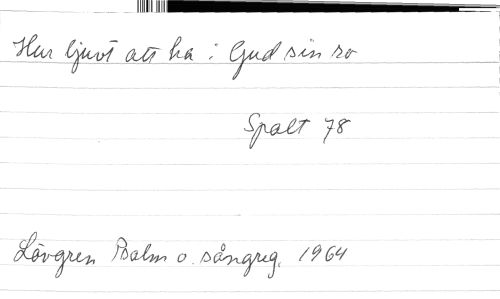 Hur ljuvt att ha i Gud sin ro
Spalt 78
Lövgren Psalm o. sångreg. 1964